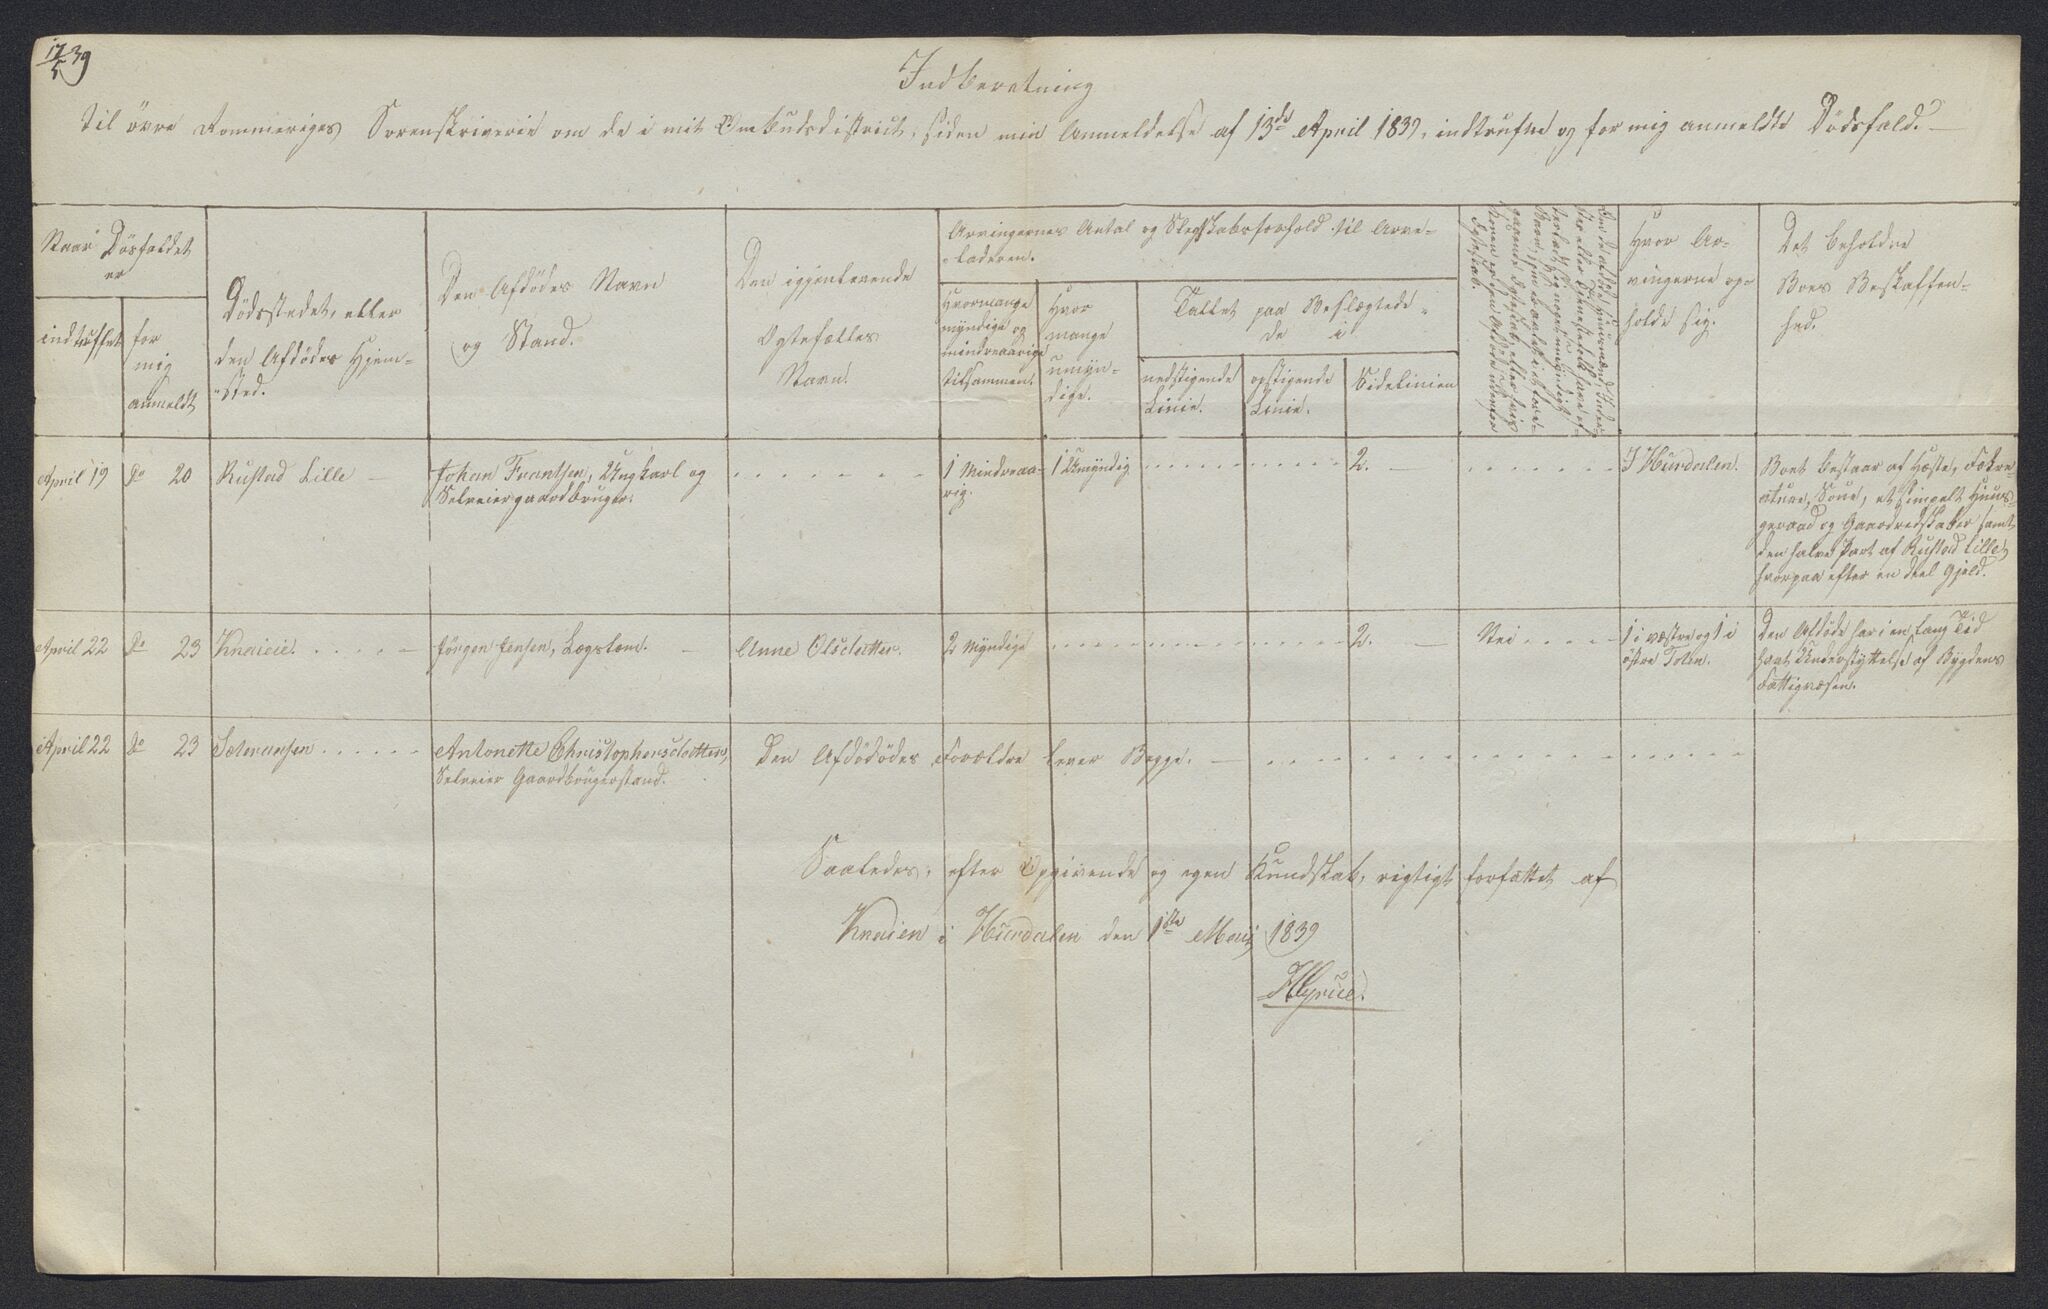 17/5 39
Indberetning
til övre Rommeriges Sorenskriverie om de i mit Ombudsdistrict, siden min Anmeldelse af 13de April 1839, indtrufne og for mig anmeldte Dödsfald. —
Naar Dösfaldet
er
indtruffet
for
mig
anmeldt
Dödsstedet, eller
den Afdödes Hjem-
sted.
Den Afdödes Navn
og Stand.
Den igjenlevende
Ægtefælles
Navn.
Arvingernes Antal og Slegtskabsforhold til Arve-
laderen.
Hvormange
myndige og
mindreaarige
tilsammen.
Hvor
mange
umyn-
dige.
Tallet paa Beslægtede
de i
nedstigende
Linie.
opstigende
Linie.
Sidelinien
Hvor Ar-
vingerne op-
holde sig.
Det beholdne
Boes Beskaffen-
hed.
April 19 Do 20 Rustad Lille — Johan Frantsen, Ungkarl og
Selveiergaardbruger.
1 Mindreaa-
rig.
1 Umyndig
2. —
I Hurdalen.
Boet bestaar af Hæste, Fækre-
ature, Soue, et simpelt Huus-
geraad og Gaardredskaber samt
den halve Part af Rustad Lille,
hvorpaa efter en deel Gjeld.
April 22 Do 23 Knaieie. Jörgen Jensen, Lægslem. — Anne Olsdatter. 2 Myndige 2. — Nei 1 i væstre og 1 i
östre Toten.
Den Afdöde har i en lang Tid
havt Understyttelse af Bygdens
Fattigvæsen.
April 22 Do 23 Antonette Christophersdatter,
Selveier Gaardbrugerstand.
Den Afdödödes Forældre lever Begge. —
Saaledes, efter Opgivende og egen Kundskab, rigtigt forfattet af
Knaien i Hurdalen den 1ste Maij 1839